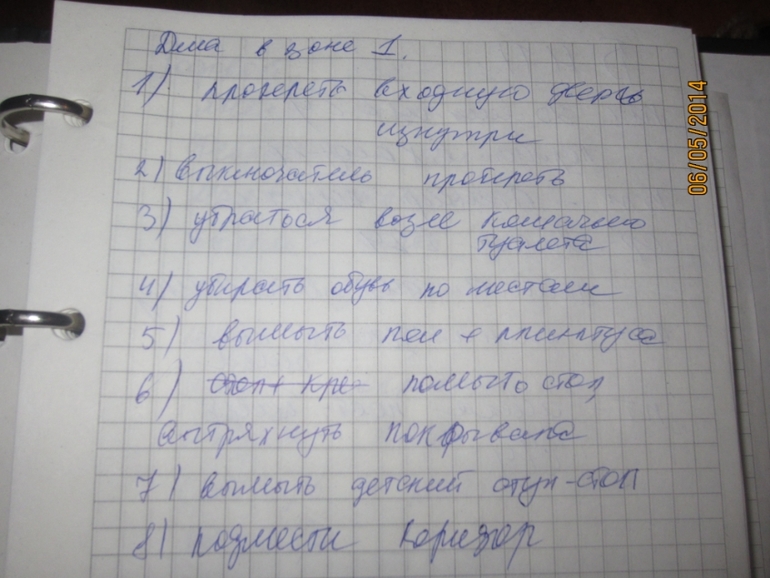 Дела в зоне 1.
1) протереть входную дверь
изнутри
2) Выключатель протереть
3) убраться возле кошачьего
туалета
4) убирать обувь по местам
5) вымыть пол + плинтуса
6) помыть стол,
вытряхнуть покрывала
7) вымыть детский стул-стол
8) подмести коридор
06/05/2014